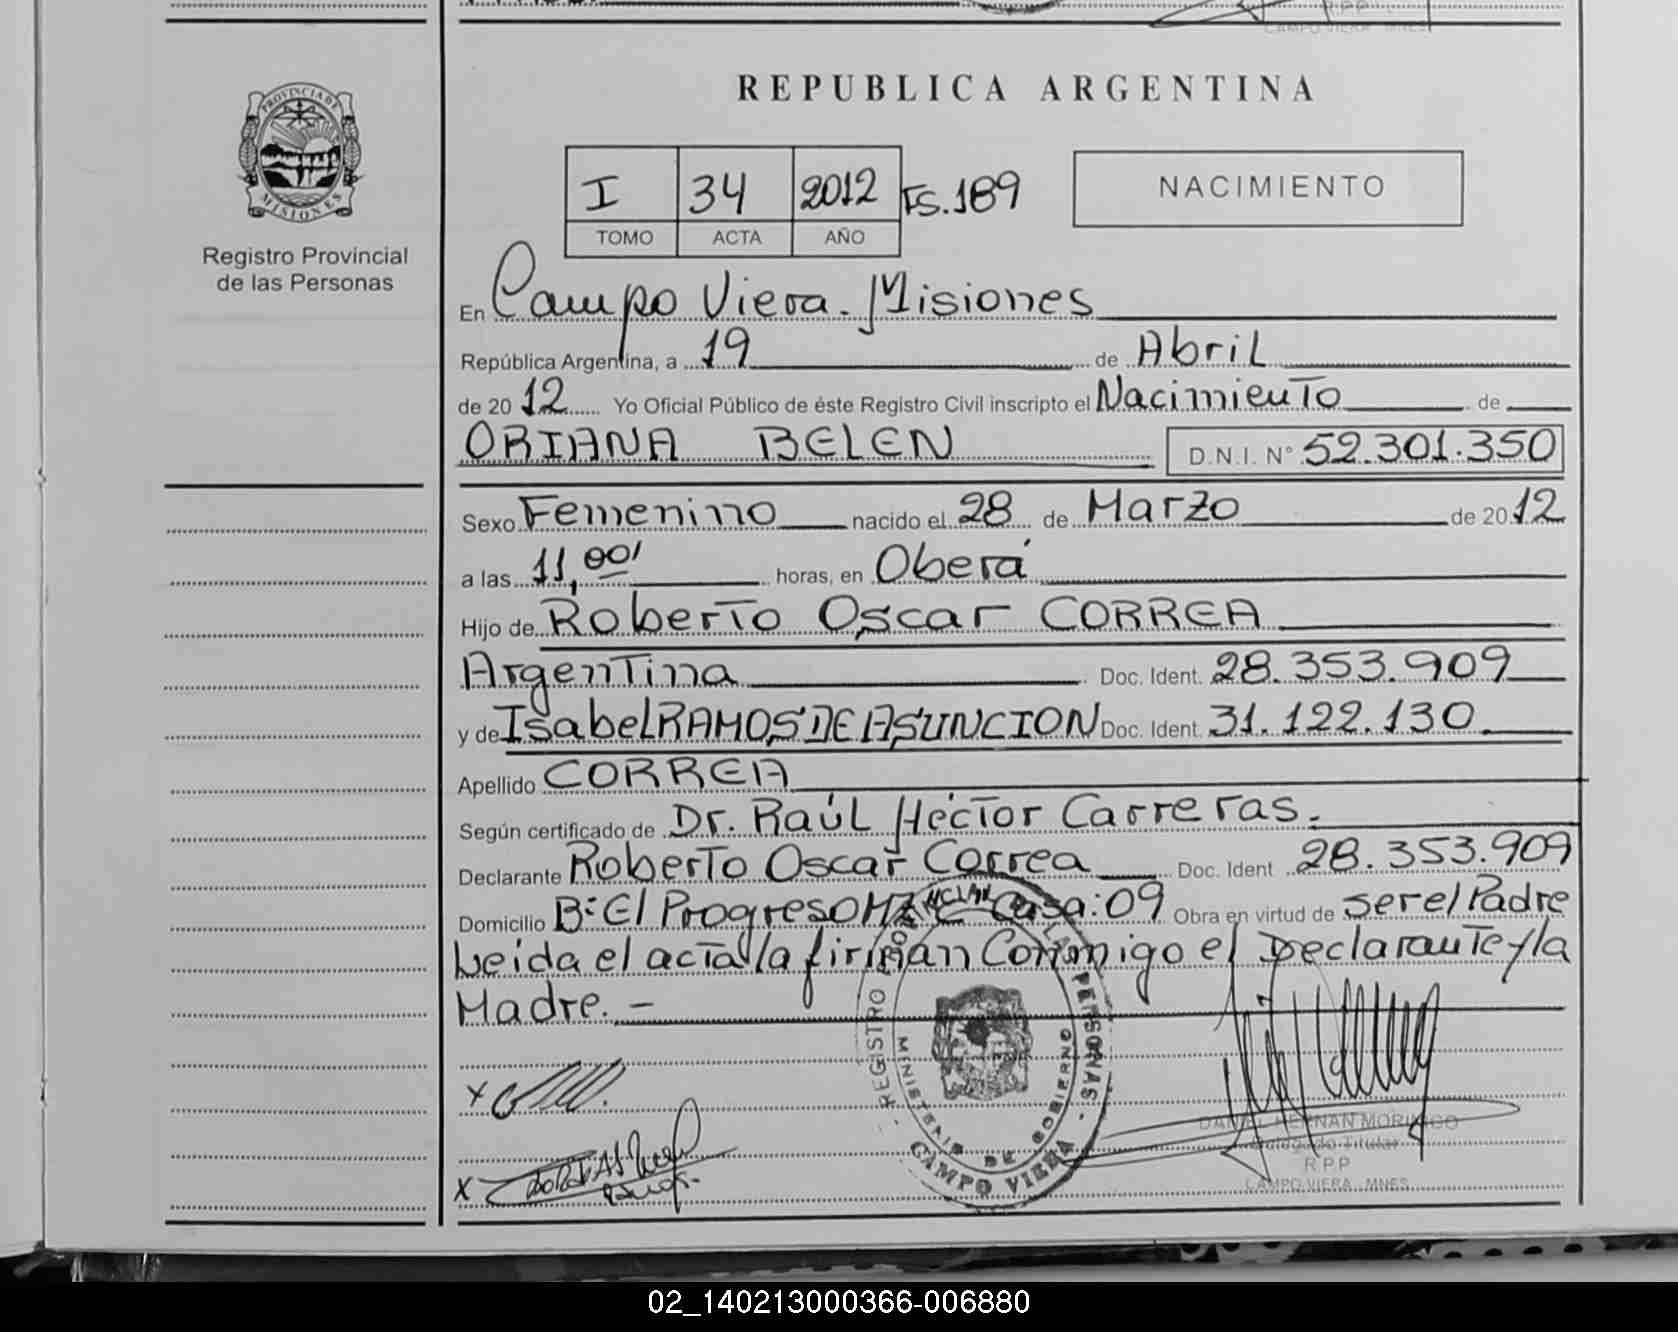 R.P.P.
CAMPO VIERA MNES
PROVINCIA DE
MISIONES
Registro Provincial
de las Personas
REPUBLICA ARGENTINA
I 34 2012 FS.189
TOMO ACTA AÑO
NACIMIENTO
En Campo Viera. Misiones
República Argentina, a 19 de Abril
de 2012 Yo Oficial Público de éste Registro Civil inscripto el Nacimiento de
ORIANA BELEN D.N.I. N° 52.301.350
Sexo Femenino nacido el 28 de Marzo de 2012
a las 11,00' horas, en Oberá
Hijo de Roberto Oscar CORREA
Argentina Doc. Ident. 28.353.909
y de Isabel RAMOS DE ASUNCION Doc. Ident. 31.122.130
Apellido CORREA
Según certificado de Dr. Raúl Héctor Carreras.
Declarante Roberto Oscar Correa Doc. Ident 28.353.909
Domicilio B: El Progreso MZ C Casa: 09 Obra en virtud de ser el Padre
Leida el acta la firman Conmigo el Declarante y la
Madre. –
REGISTRO PROVINCIAL DE LAS PERSONAS
MINISTERIO DE GOBIERNO
CAMPO VIERA
X
X
DANIEL HERNAN MORINIGO
Delegado Titular
R.P.P
CAMPO VIERA MNES
02_140213000366-006880